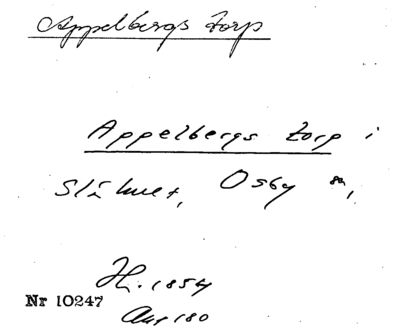 Appelbergs torp
Appelbergs torp i
Slähult, Osby sn,
Hi. 1854
Nr 10247
Ant 180